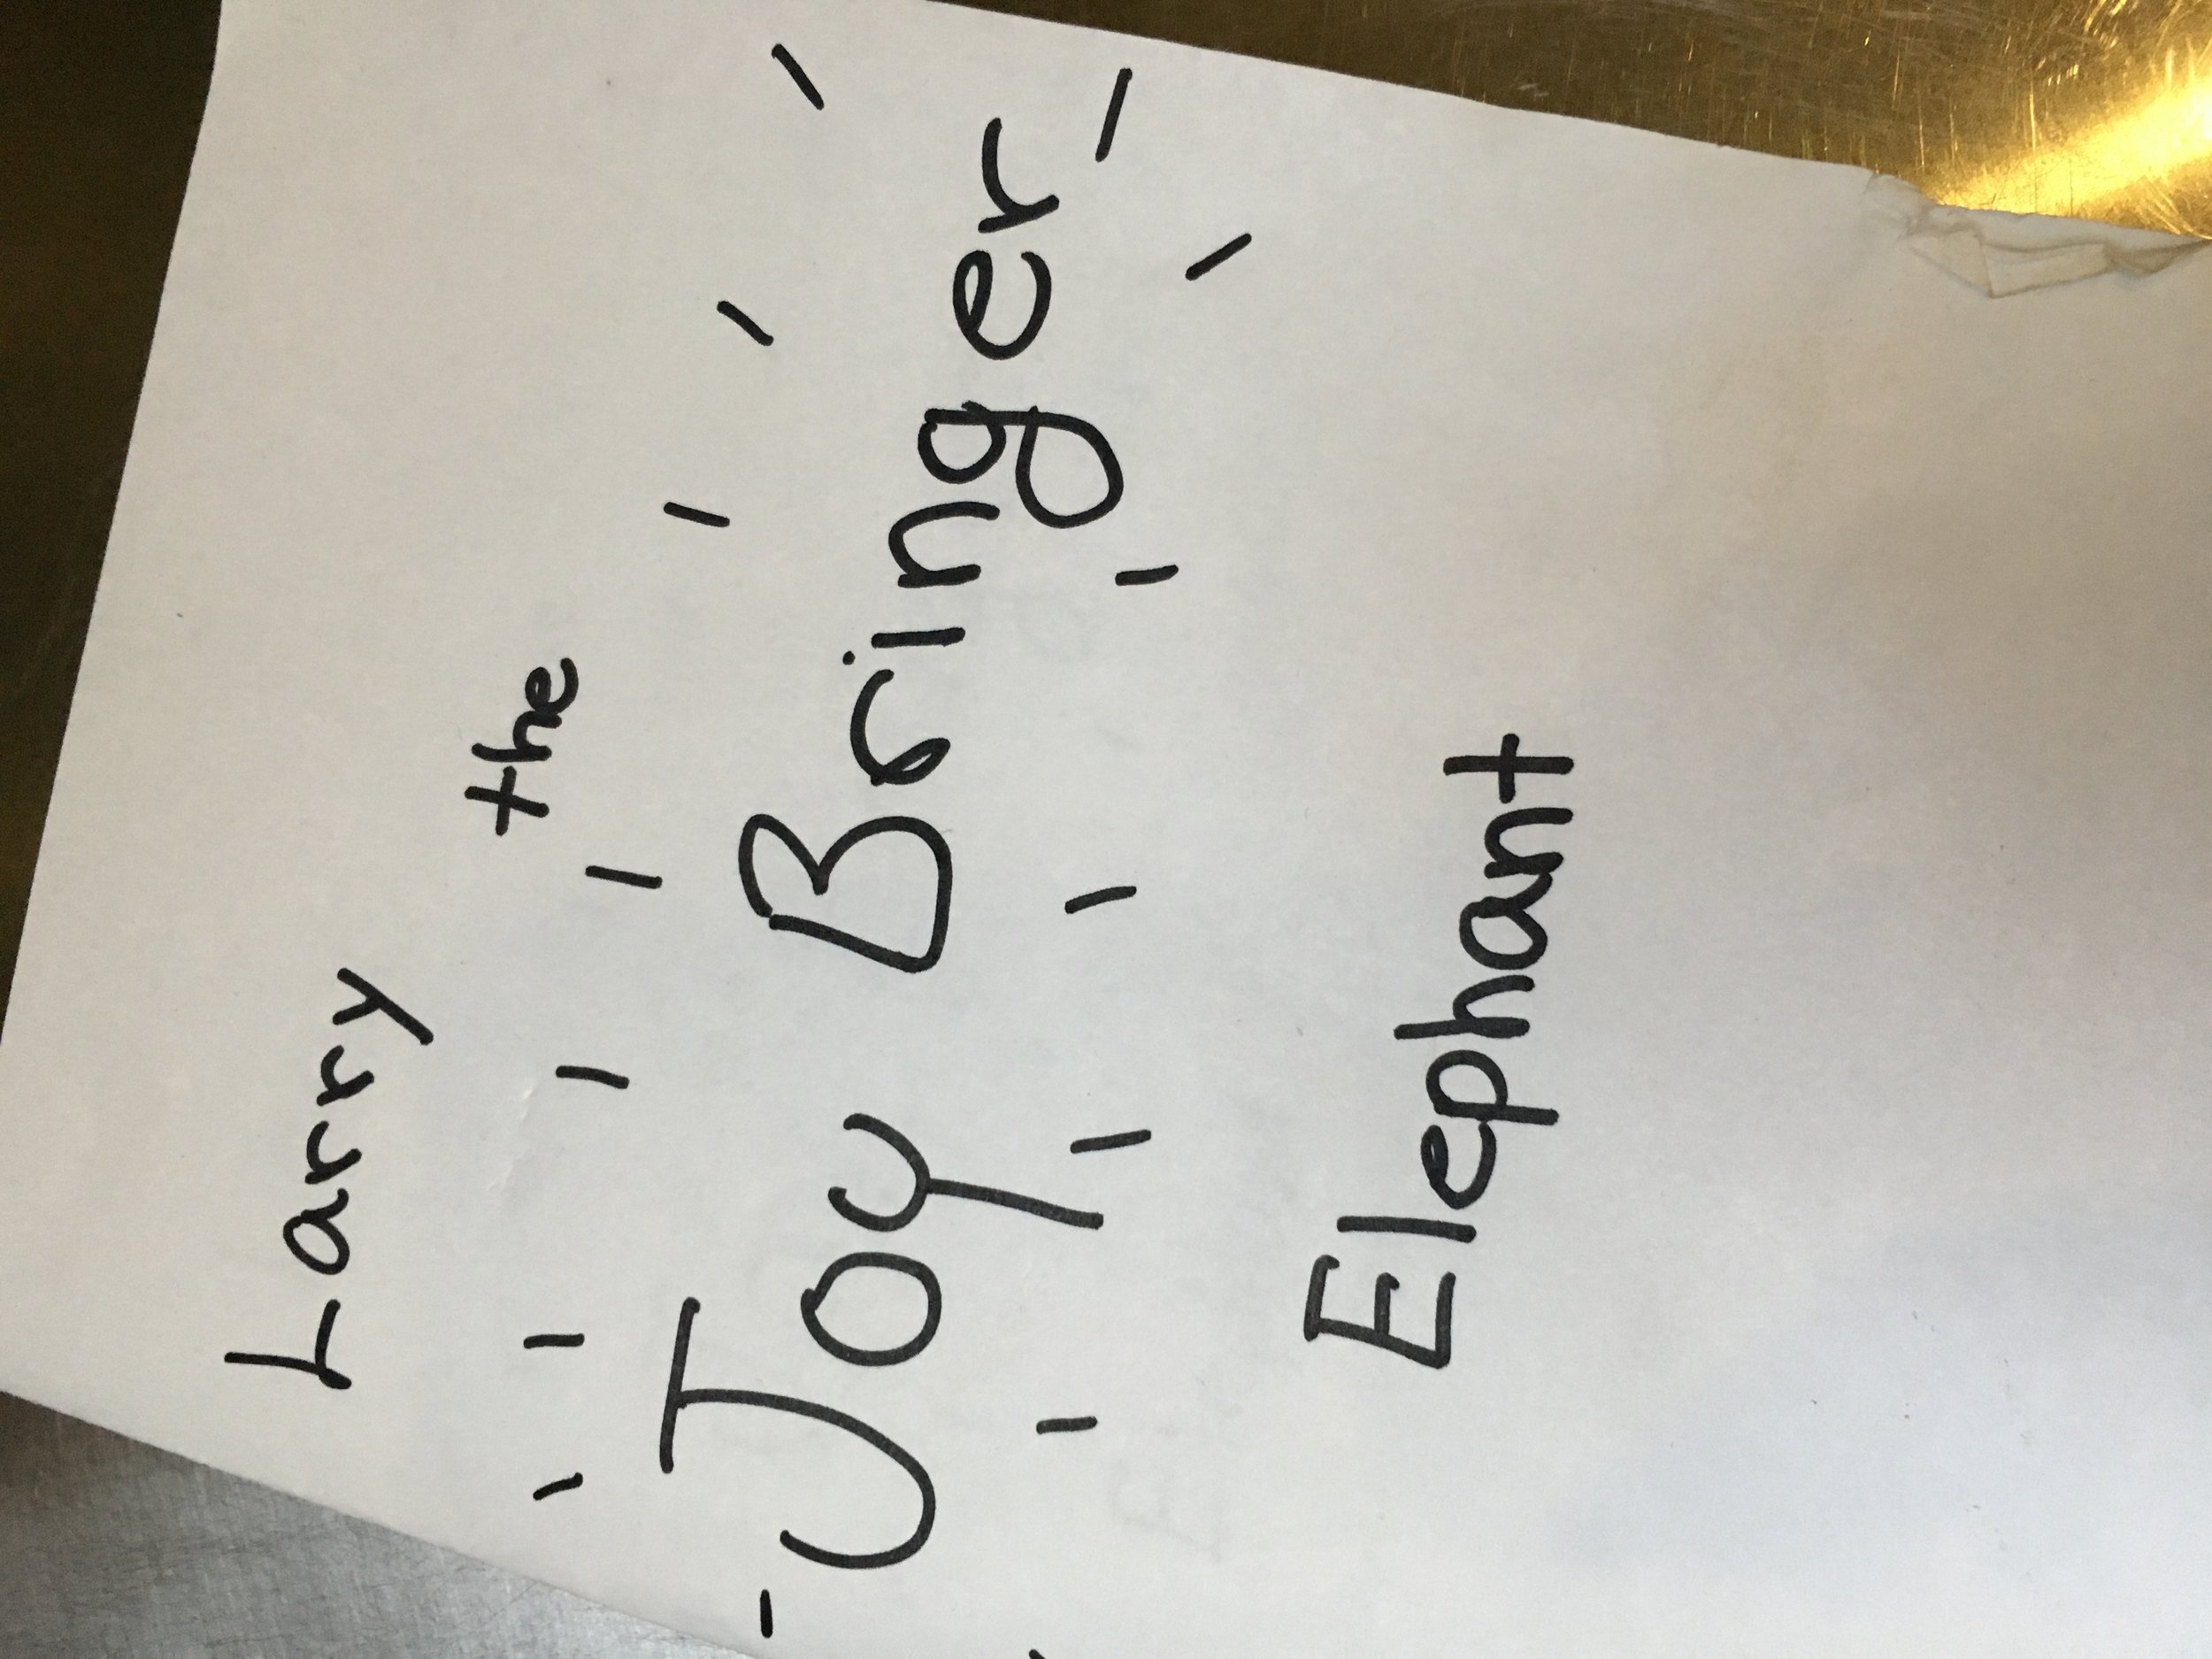 Larry
the
Joy Bringer
Elephant